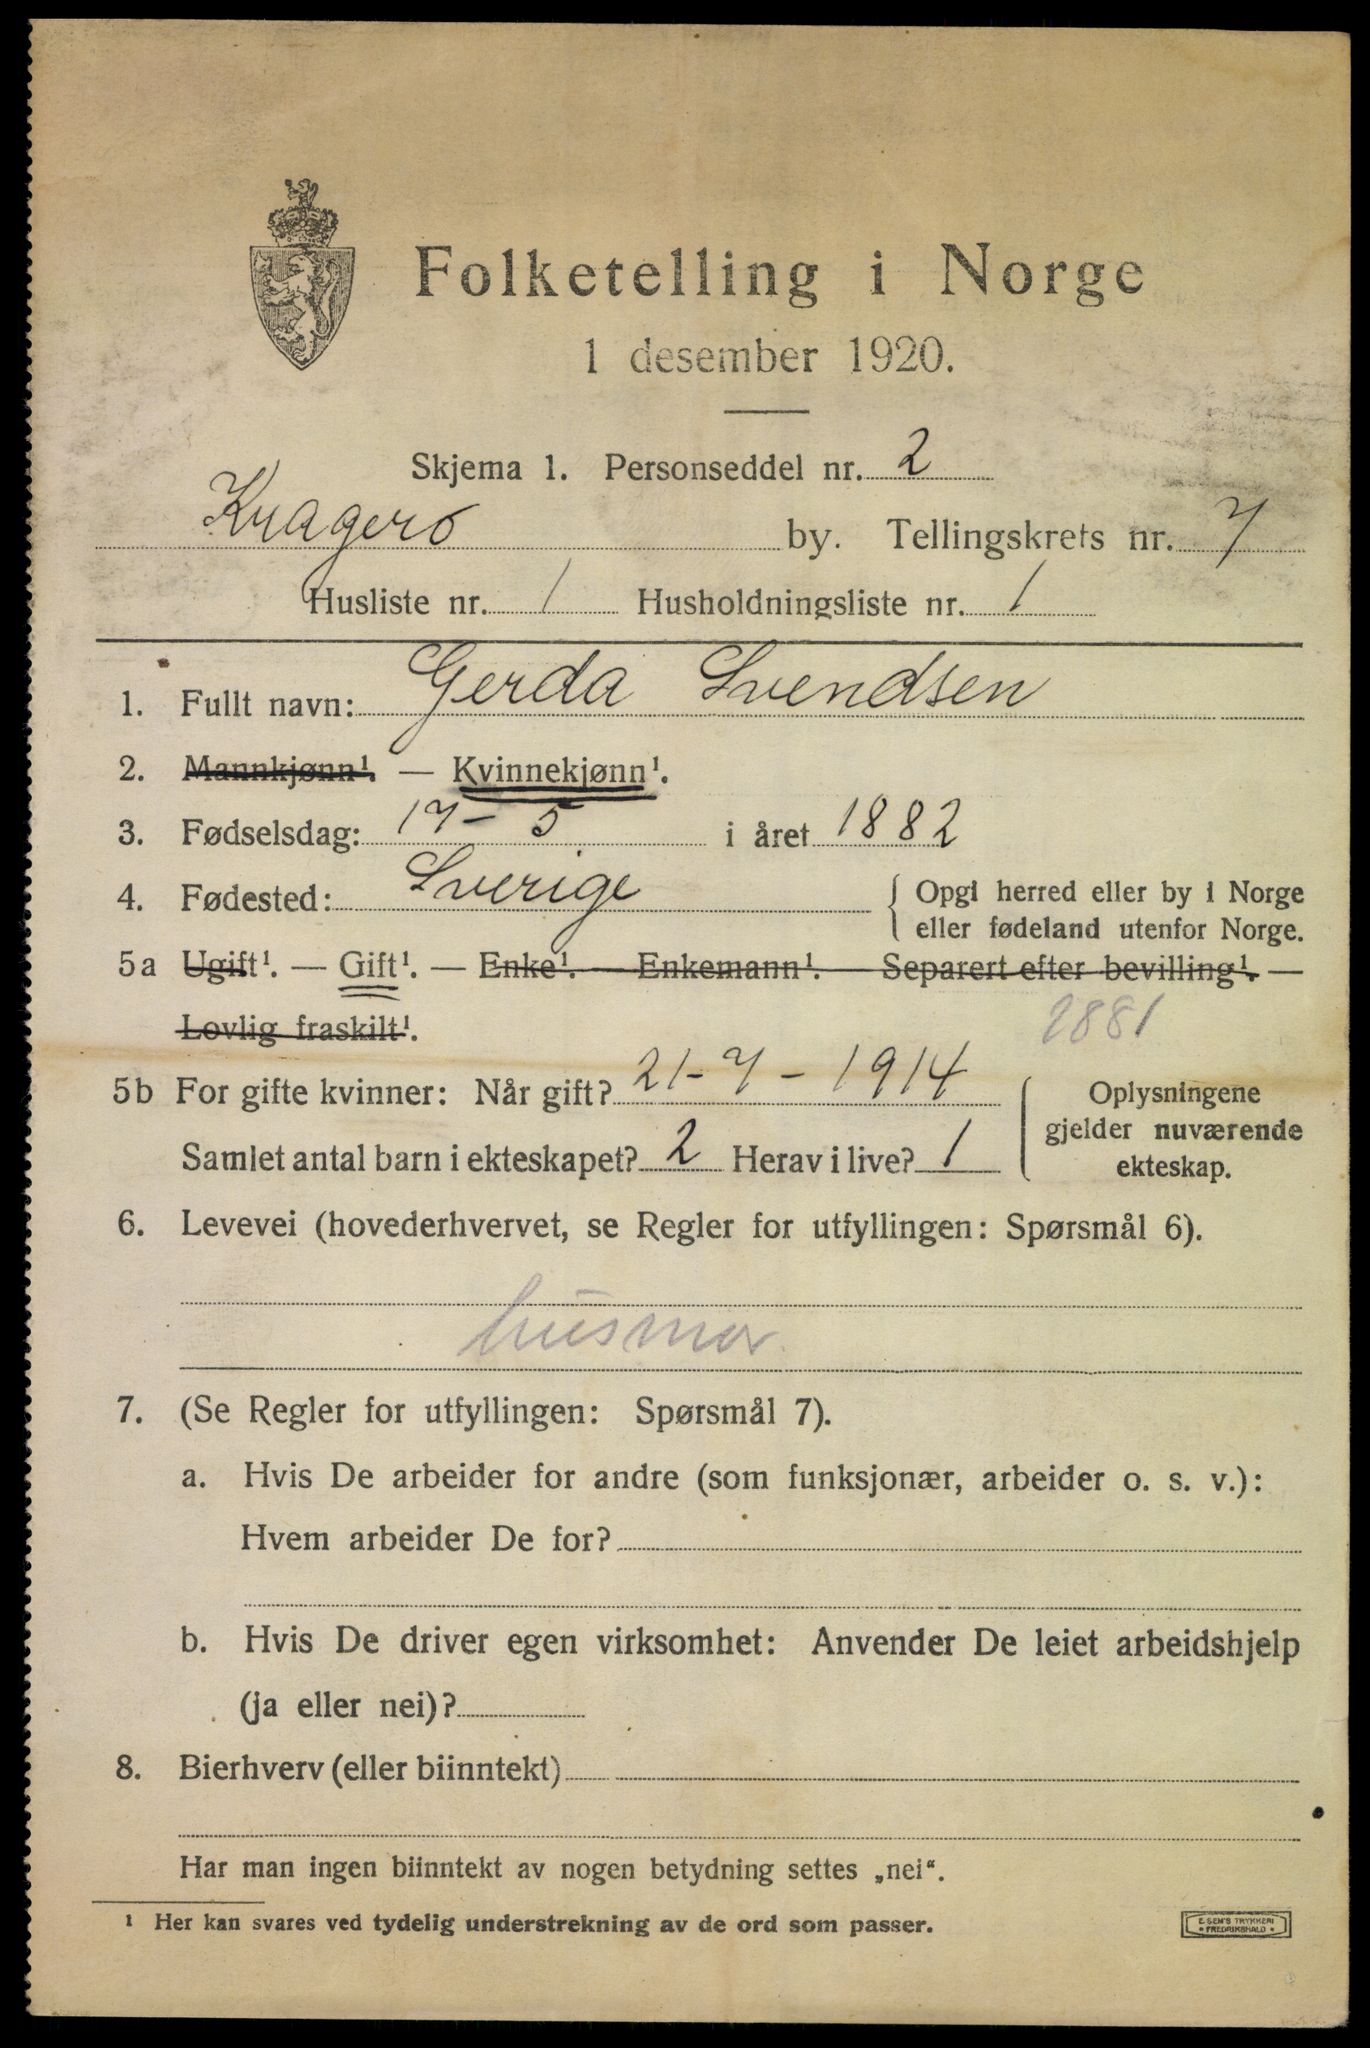 Folketelling i Norge
1 desember 1920.
Skjema 1. Personseddel nr. 2
Kragerø by. Tellingskrets nr. 7
Husliste nr. 1 Husholdningsliste nr. 1
1. Fullt navn: Gerda Svendsen
2. Mannkjønn¹. — Kvinnekjønn¹.
3. Fødselsdag: 17 - 5 i året 1882
4. Fødested: Sverige { Opgi herred eller by i Norge
eller fødeland utenfor Norge.
5a Ugift¹. — Gift¹. — Enke¹. — Enkemann¹. — Separert efter bevilling¹. —
Lovlig fraskilt¹.
5b For gifte kvinner: Når gift? 21-7-1914
Samlet antal barn i ekteskapet? 2 Herav i live? 1
Oplysningene
gjelder nuværende
ekteskap.
6. Levevei (hovederhvervet, se Regler for utfyllingen: Spørsmål 6).
husmor
7. (Se Regler for utfyllingen: Spørsmål 7).
a. Hvis De arbeider for andre (som funksjonær, arbeider o. s. v.):
Hvem arbeider De for?
b. Hvis De driver egen virksomhet: Anvender De leiet arbeidshjelp
(ja eller nei)?
8. Bierhverv (eller biinntekt)
Har man ingen biinntekt av nogen betydning settes „nei“.
¹ Her kan svares ved tydelig understrekning av de ord som passer.
E. SEM'S TRYKKERI
• FREDRIKSHALD •